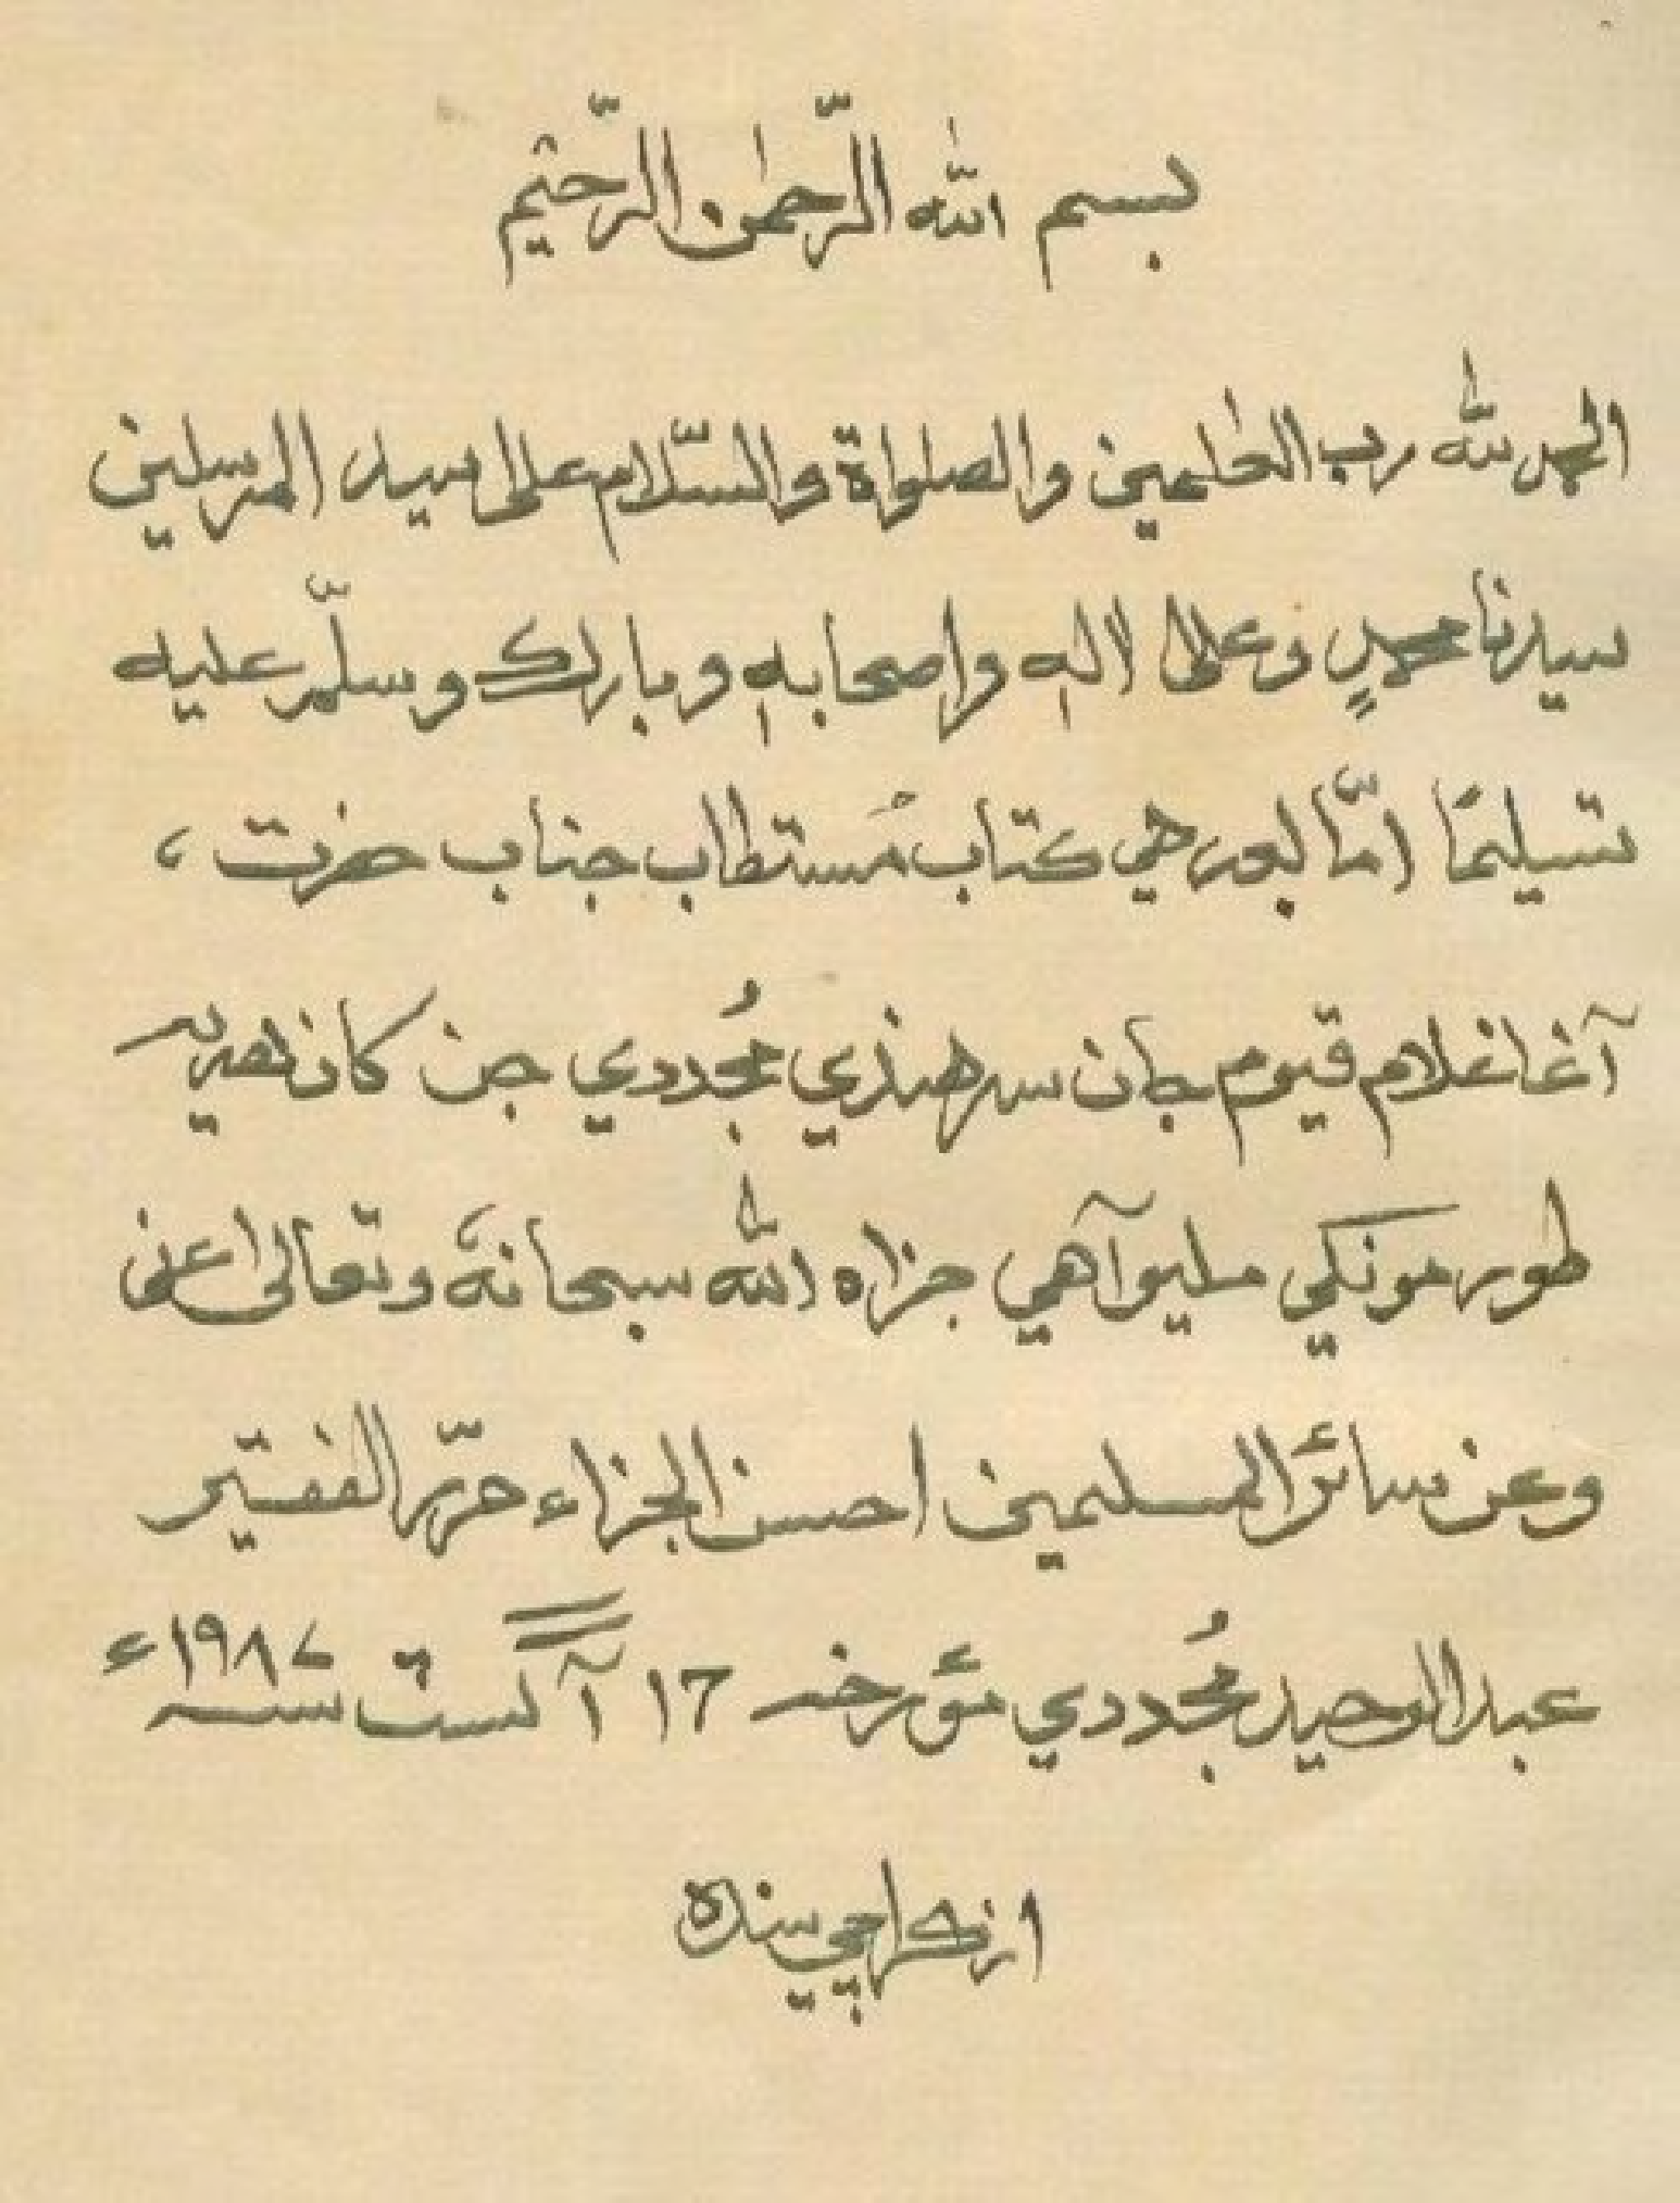 بسم الله الرّحمٰن الرّحیم
الحمد للّٰه رب العٰلمین والصلواة والسّلام علیٰ سید المرسلین
سیدنا محمدٍ وعلیٰ اٰلهٖ واصحابهٖ وبارك وسلّم علیه
تسلیمًا امّا بعد هي کتاب مُستطاب جناب حضرت،
آغا غلام قیوم جان سرهندي مُجددي جن کان هدیہ
طور مونکي ملیو آهي جزاه اللّٰه سبحانهٗ وتعالیٰ عنی
وعن سائر المسلمین احسن الجزاء حرّره الفقیر
عبدالوحید مُجددي مؤرخہ 17 آگست سنہ ۱۹۸۷ء
از ڪراچي سنده